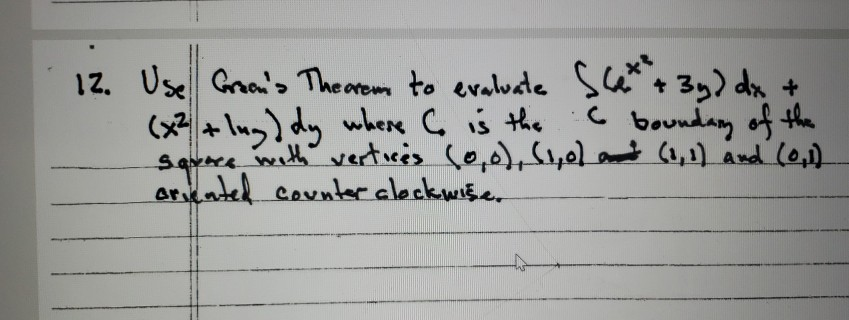 12. Use Green's Theorem to evaluate ∫(e^x² + 3y) dx +
(x² + lny) dy where C is the C boundary of the
square with vertices (0,0), (1,0) and (1,1) and (0,1)
oriented counter clockwise.